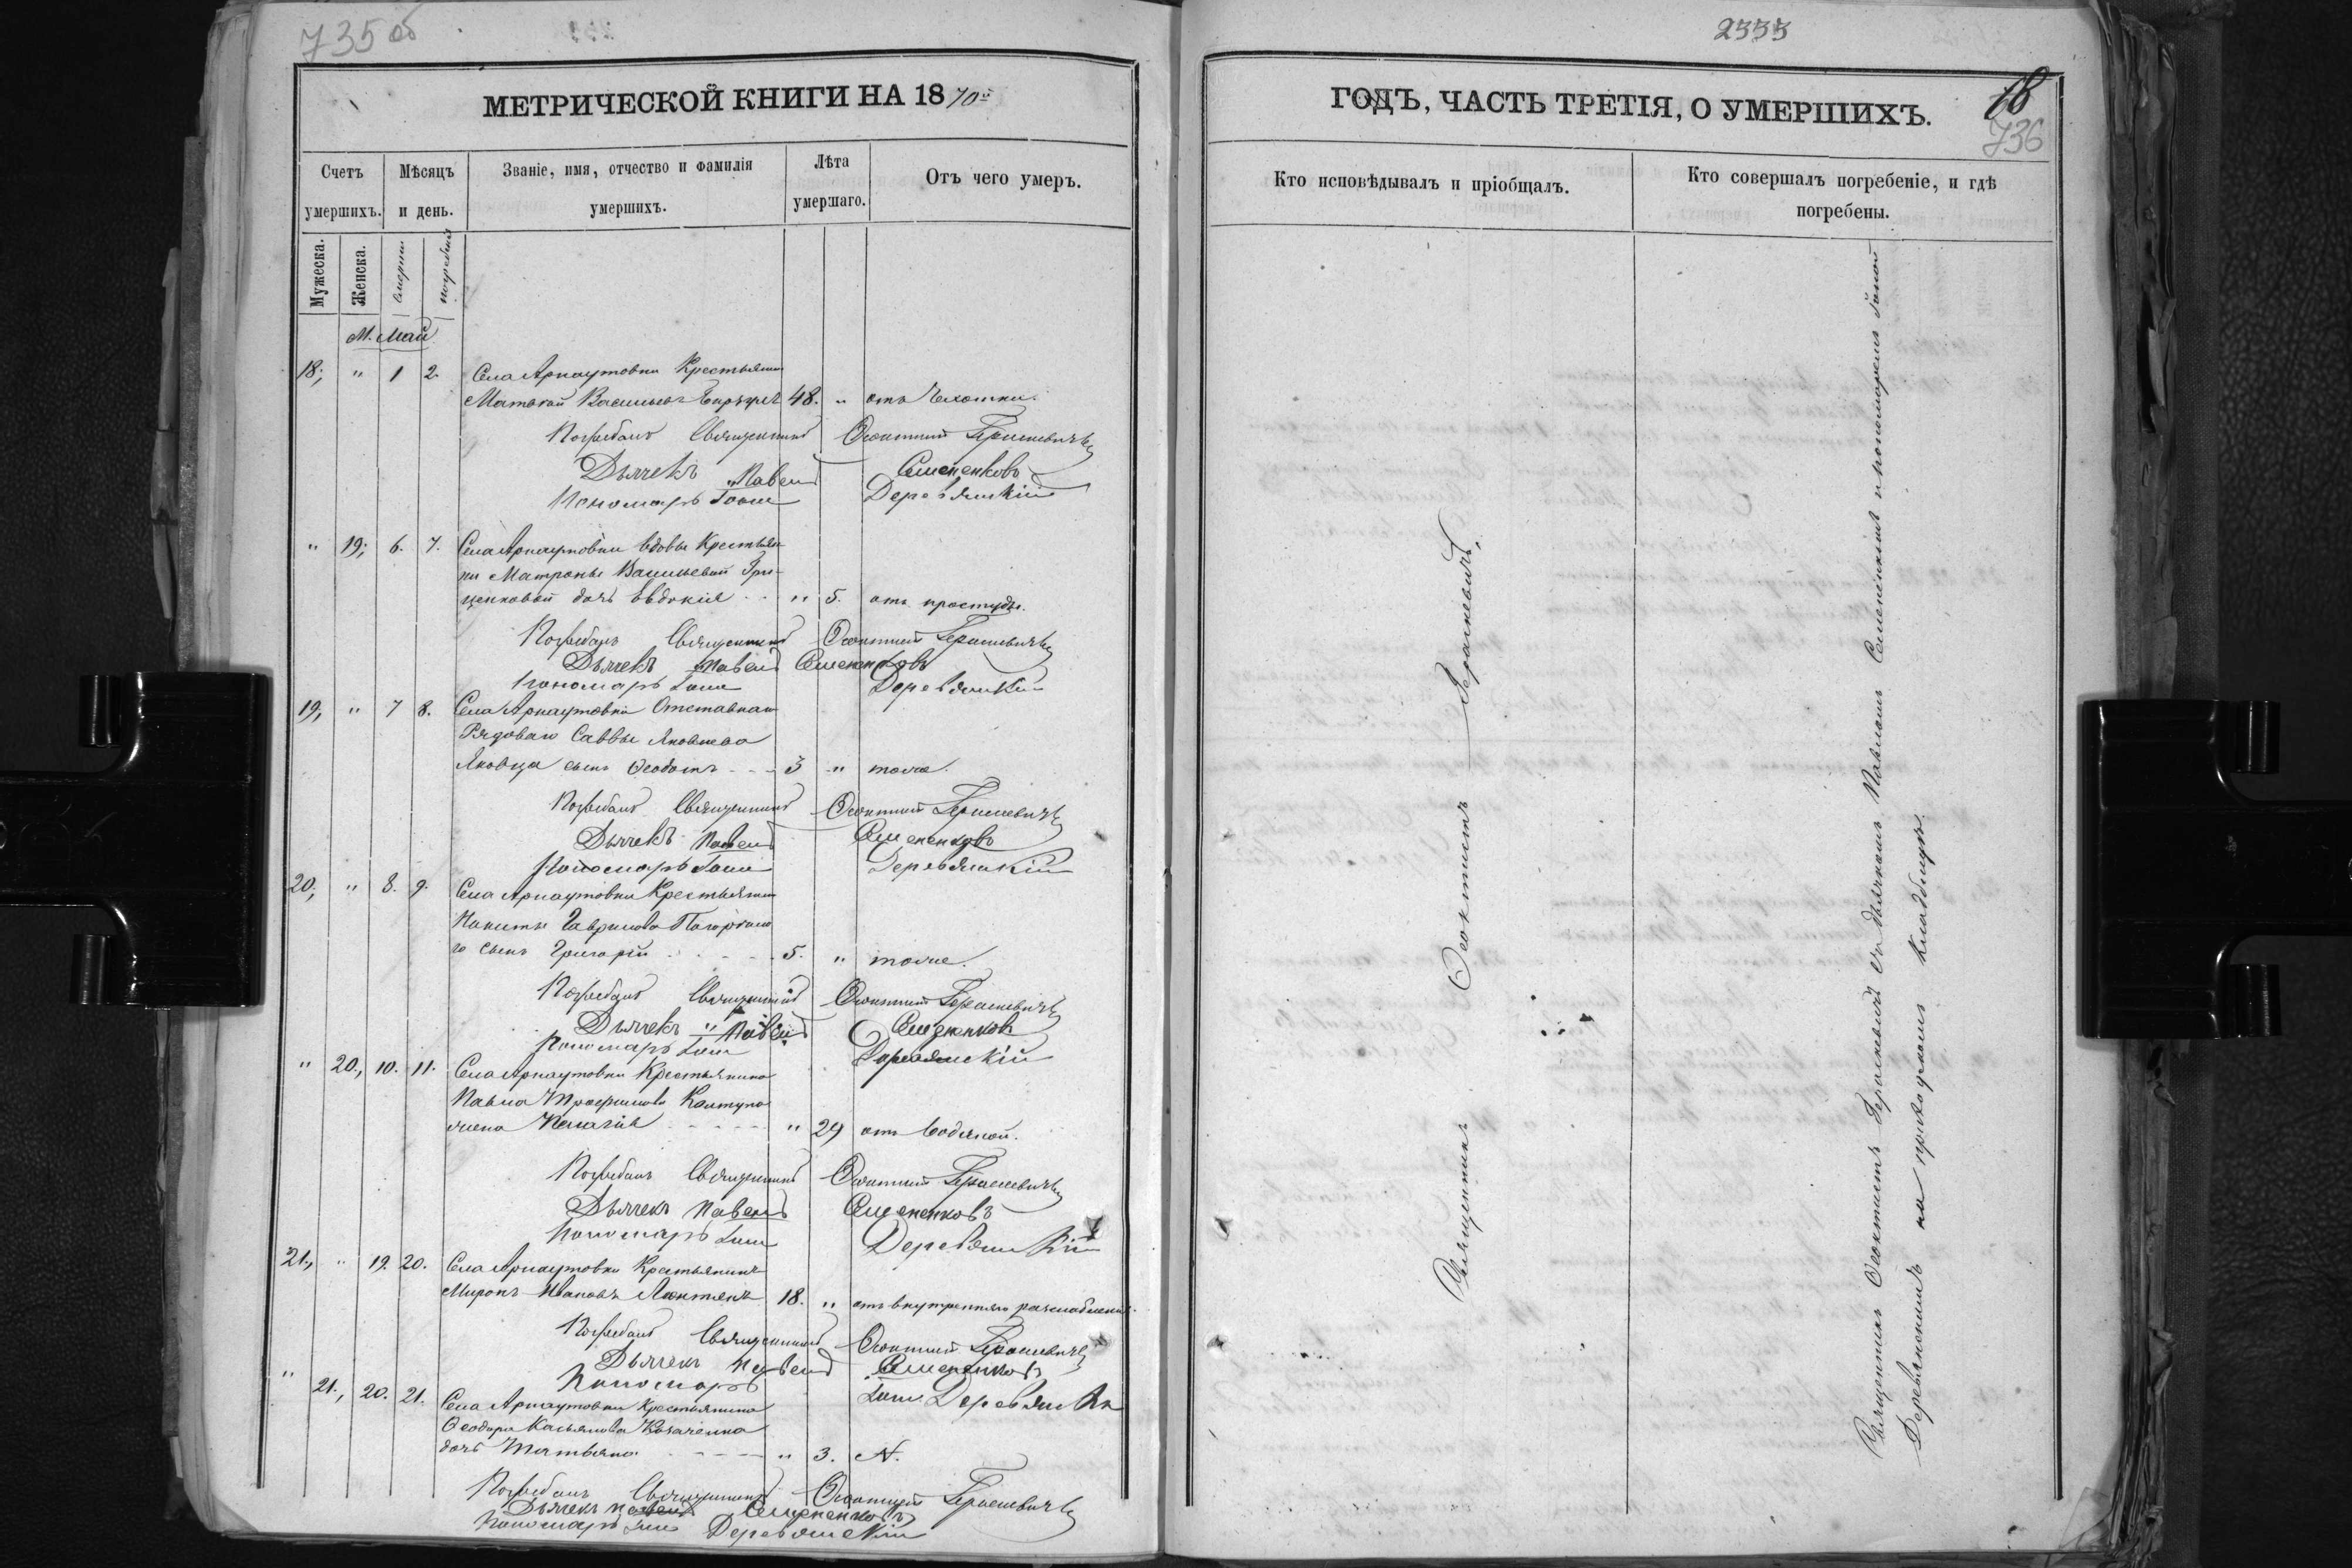 735 об
МЕТРИЧЕСКОЙ КНИГИ НА 1870й
Счетъ умершихъ.
Мѣсяцъ и день.
Званіе, имя, отчество и фамилія умершихъ.
Лѣта умершаго.
Отъ чего умеръ.
Мужеска.
Женска.
смерти
погребенія
М. Май
18; " 1 2. Села Арнаутовки Крестьянин
Матвей Васильевъ 48. " отъ чахотки.
Погребалъ Священникъ Ѳеоктистъ Герасневичъ
Дьячекъ Павелъ Семененковъ
Пономарь Іоаннъ Деревянскій
" 19; 6. 7. Села Арнаутовки вдовы Крестьян
ки Матроны Васильевой Гри-
ценковой дочь Евдокія " 5. отъ простуды.
Погребалъ Священникъ Ѳеоктистъ Герасневичъ
Дьячекъ Павелъ Семененковъ
Пономарь Іоаннъ Деревянскій
19; " 7 8. Села Арнаутовки Отставнаго
Рядоваго Саввы Яковлева
Яковца сынъ Ѳеодотъ 3 " тоже.
Погребалъ Священникъ Ѳеоктистъ Герасневичъ
Дьячекъ Павелъ Семененковъ
Пономарь Іоаннъ Деревянскій
20; " 8. 9. Села Арнаутовки Крестьянин
Никиты Гаврилова
го сынъ Григорій 5. " тоже.
Погребалъ Священникъ Ѳеоктистъ Герасневичъ
Дьячекъ " Павелъ Семененковъ
Пономарь Іоаннъ Деревянскій
" 20; 10. 11. Села Арнаутовки Крестьянина
Павла Трофимова
жена Пелагія " 29 отъ водяной.
Погребалъ Священникъ Ѳеоктистъ Герасневичъ
Дьячекъ Павелъ Семененковъ
Пономарь Іоаннъ Деревянскій
21; " 19. 20. Села Арнаутовки Крестьянинъ
Миронъ Ивановъ 18. " отъ внутренняго разслабленія.
Погребалъ Священникъ Ѳеоктистъ Герасневичъ
Дьячекъ Павелъ Семененковъ
Пономарь Іоаннъ Деревянскій
" 21; 20. 21. Села Арнаутовки Крестьянина
Ѳеодора Касьянова Козаченка
дочь Татьяна " 3. N.
Погребалъ Священникъ Ѳеоктистъ Герасневичъ
Дьячекъ Павелъ Семененковъ
Пономарь Іоаннъ Деревянскій
2333
ГОДЪ, ЧАСТЬ ТРЕТІЯ, О УМЕРШИХЪ.
18
736
Кто исповѣдывалъ и пріобщалъ.
Кто совершалъ погребеніе, и гдѣ погребены.
Священникъ Ѳеоктистъ Герасневичъ.
Священникъ Ѳеоктистъ Герасневичъ съ дьячкомъ Павломъ Семененкимъ и пономаремъ Іоанномъ
Деревянскимъ на приходскомъ кладбищѣ.